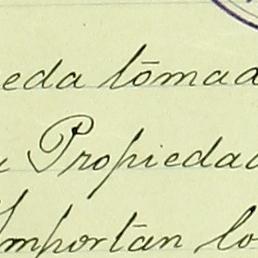 eda tōmad
Propiedad
Importan lo